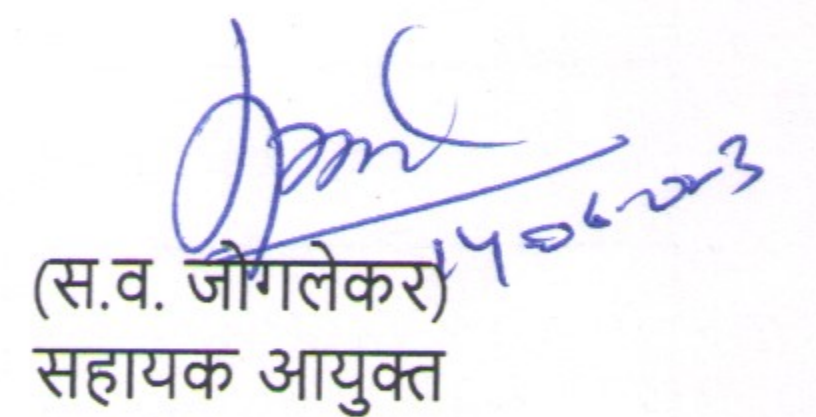 14-06-2023
(स.व. जोगलेकर)
सहायक आयुक्त